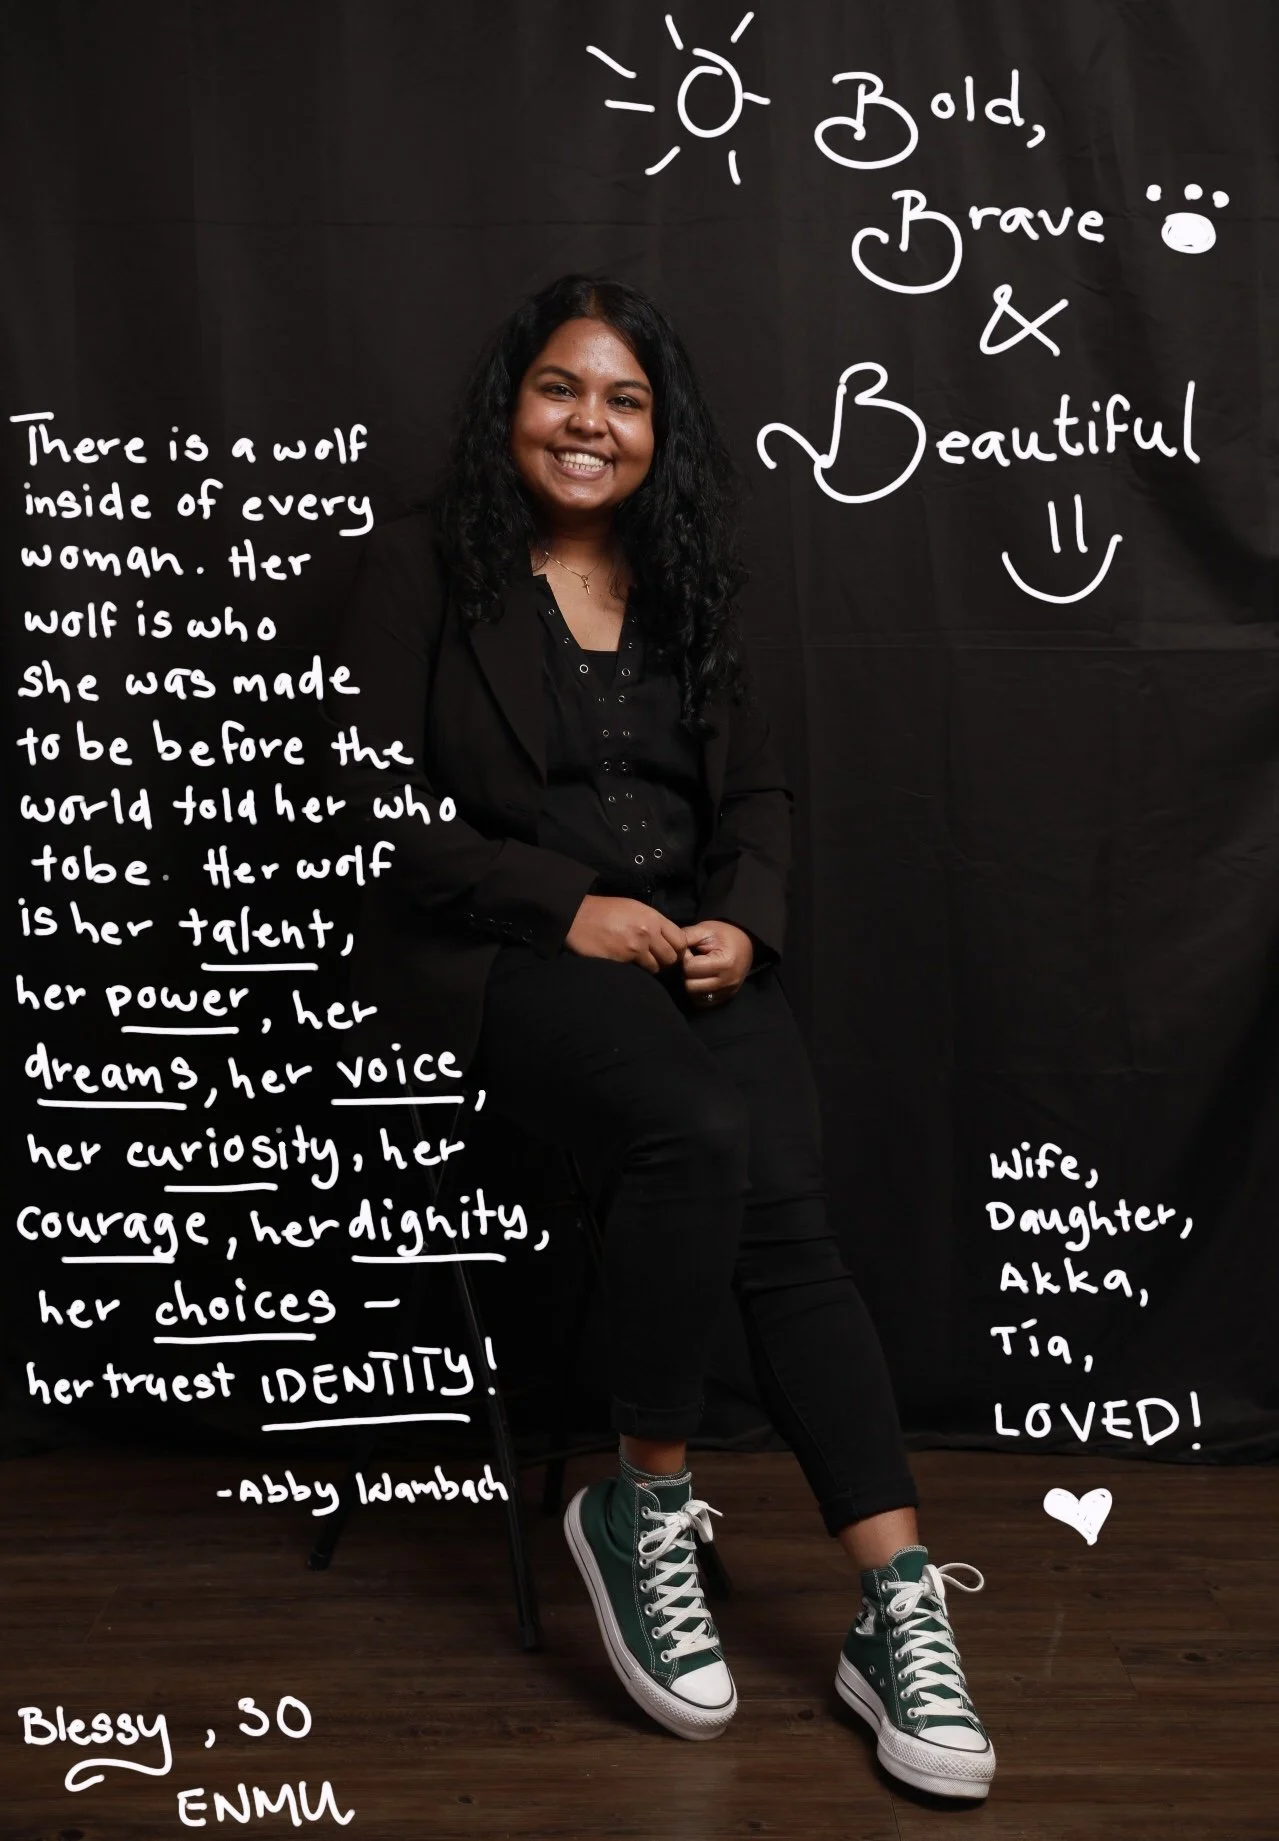 Bold,
Brave
&
Beautiful
There is a wolf
inside of every
woman. Her
wolf is who
she was made
to be before the
world told her who
tobe. Her wolf
is her talent,
her power, her
dreams, her voice,
her curiosity, her
courage, her dignity,
her choices –
her truest IDENTITY!
-Abby Wambach
Wife,
Daughter,
Akka,
Tía,
LOVED!
Blessy, 30
ENMU